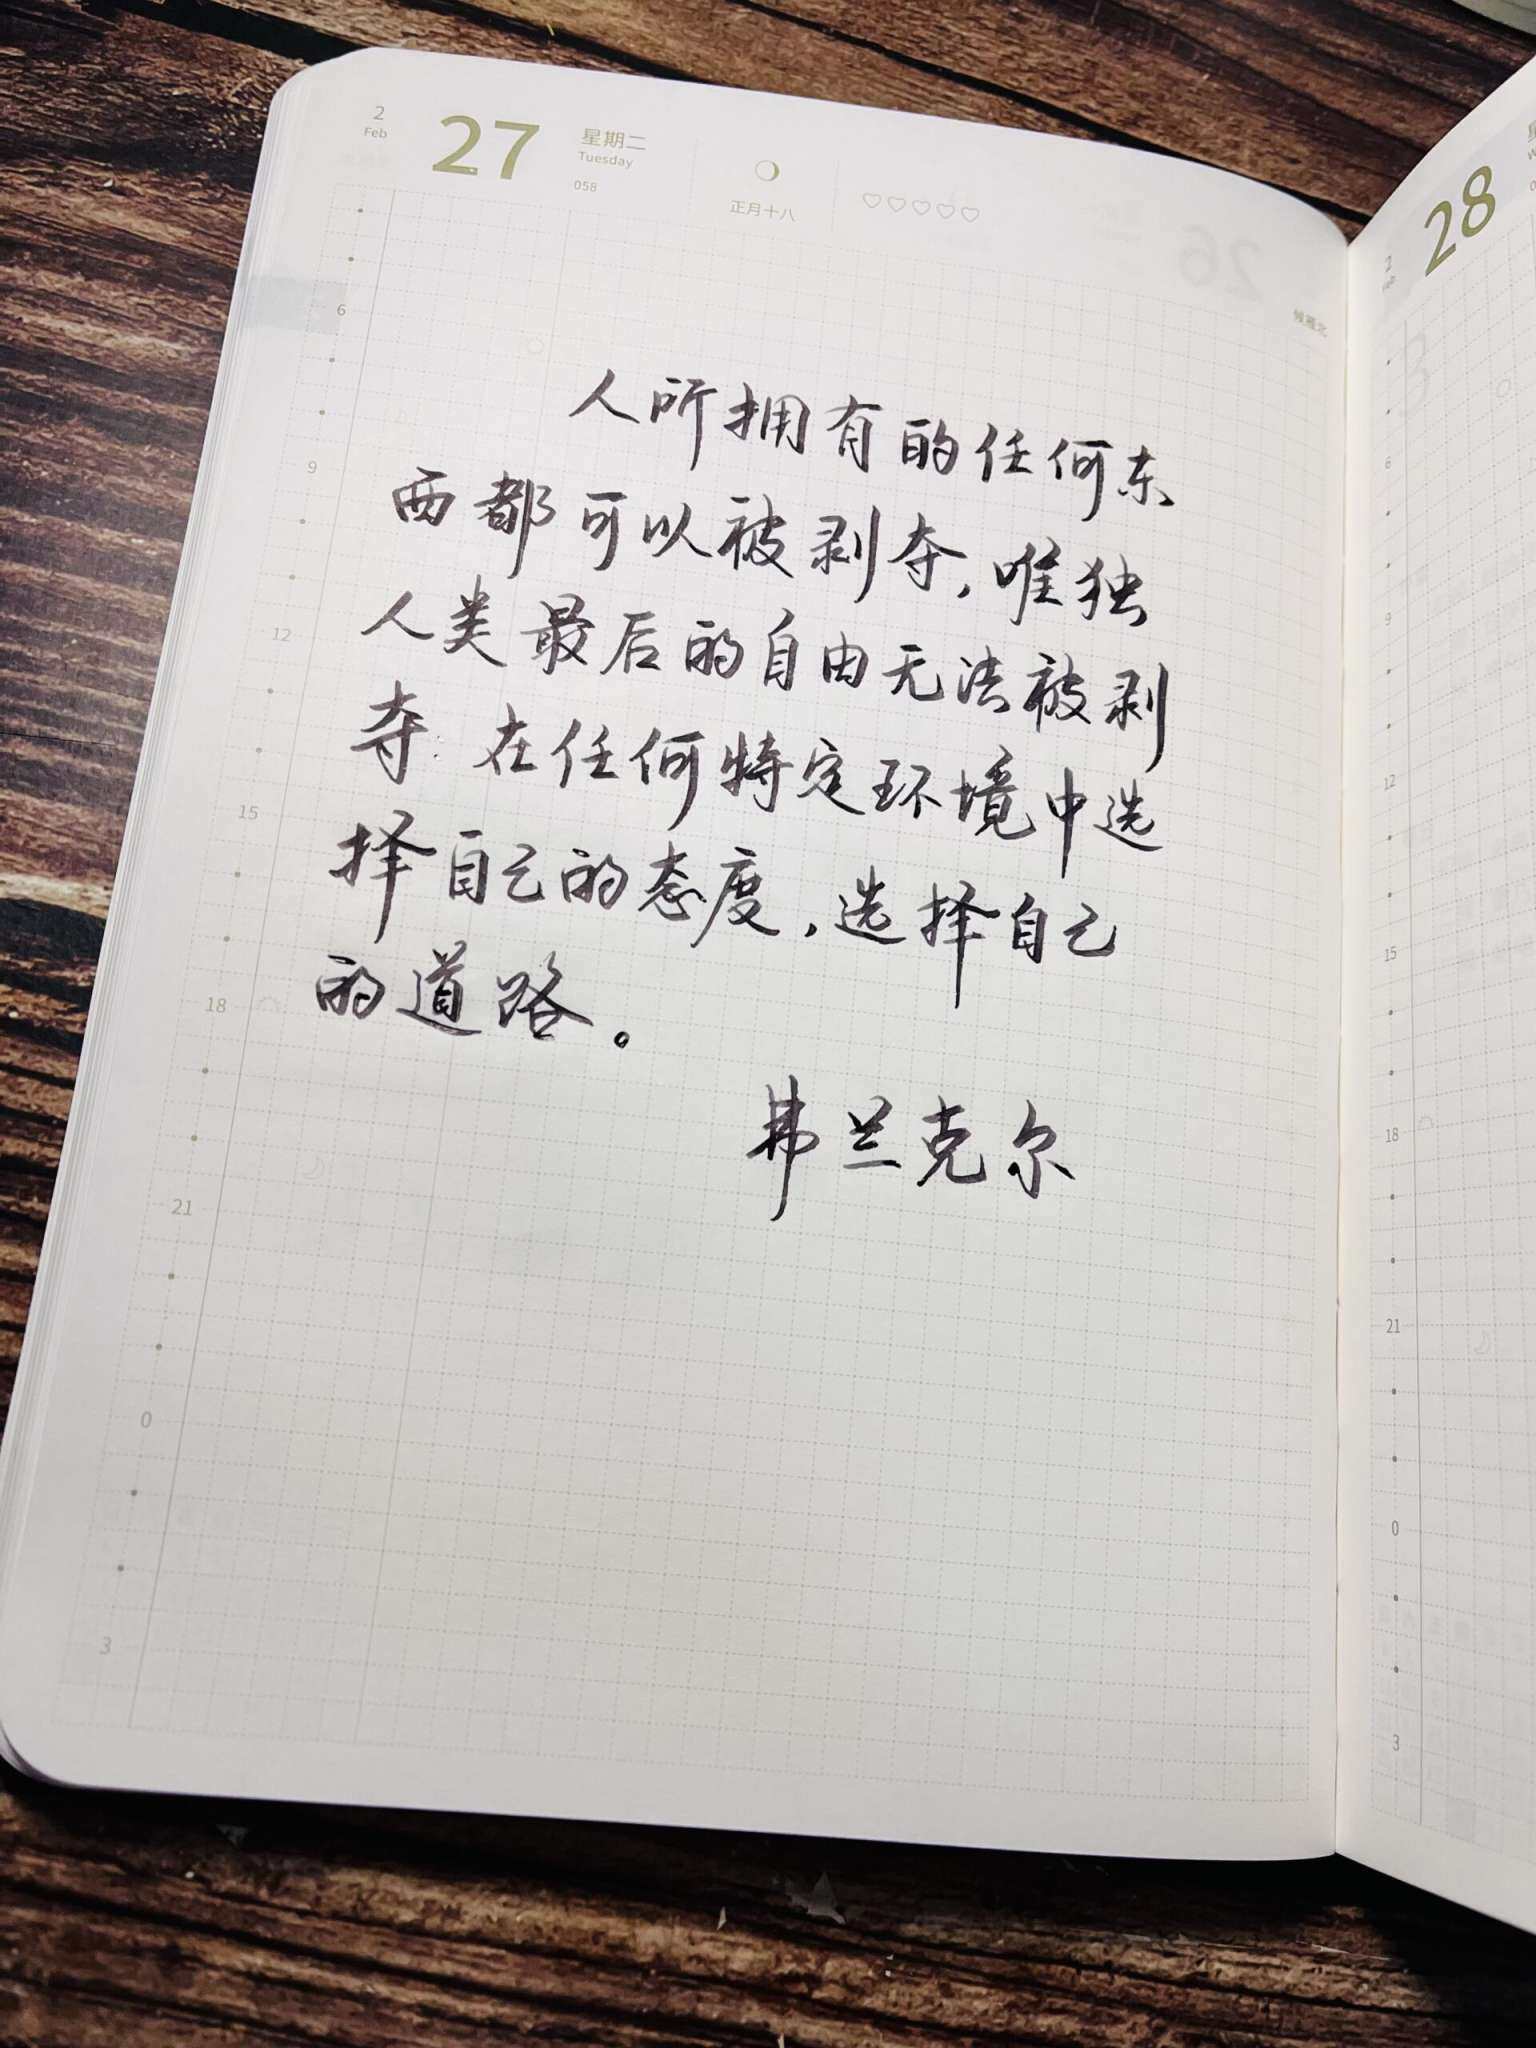 2
Feb
27
星期二
Tuesday
058
正月十八
26
候雁北
28
人所拥有的任何东
西都可以被剥夺,唯独
人类最后的自由无法被剥
夺:在任何特定环境中选
择自己的态度,选择自己
的道路。
弗兰克尔
6
9
12
15
18
21
0
3
2
6
9
12
15
18
21
0
3